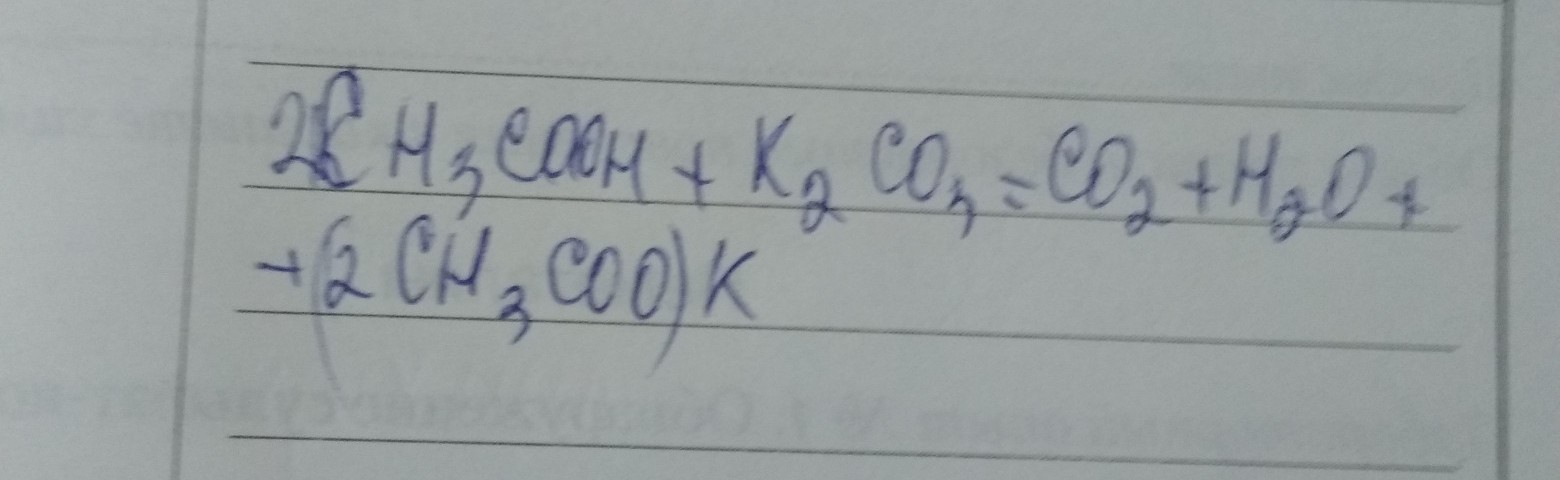 2CH₃COOH + K₂CO₃ = CO₂ + H₂O +
+ (2CH₃COO)K